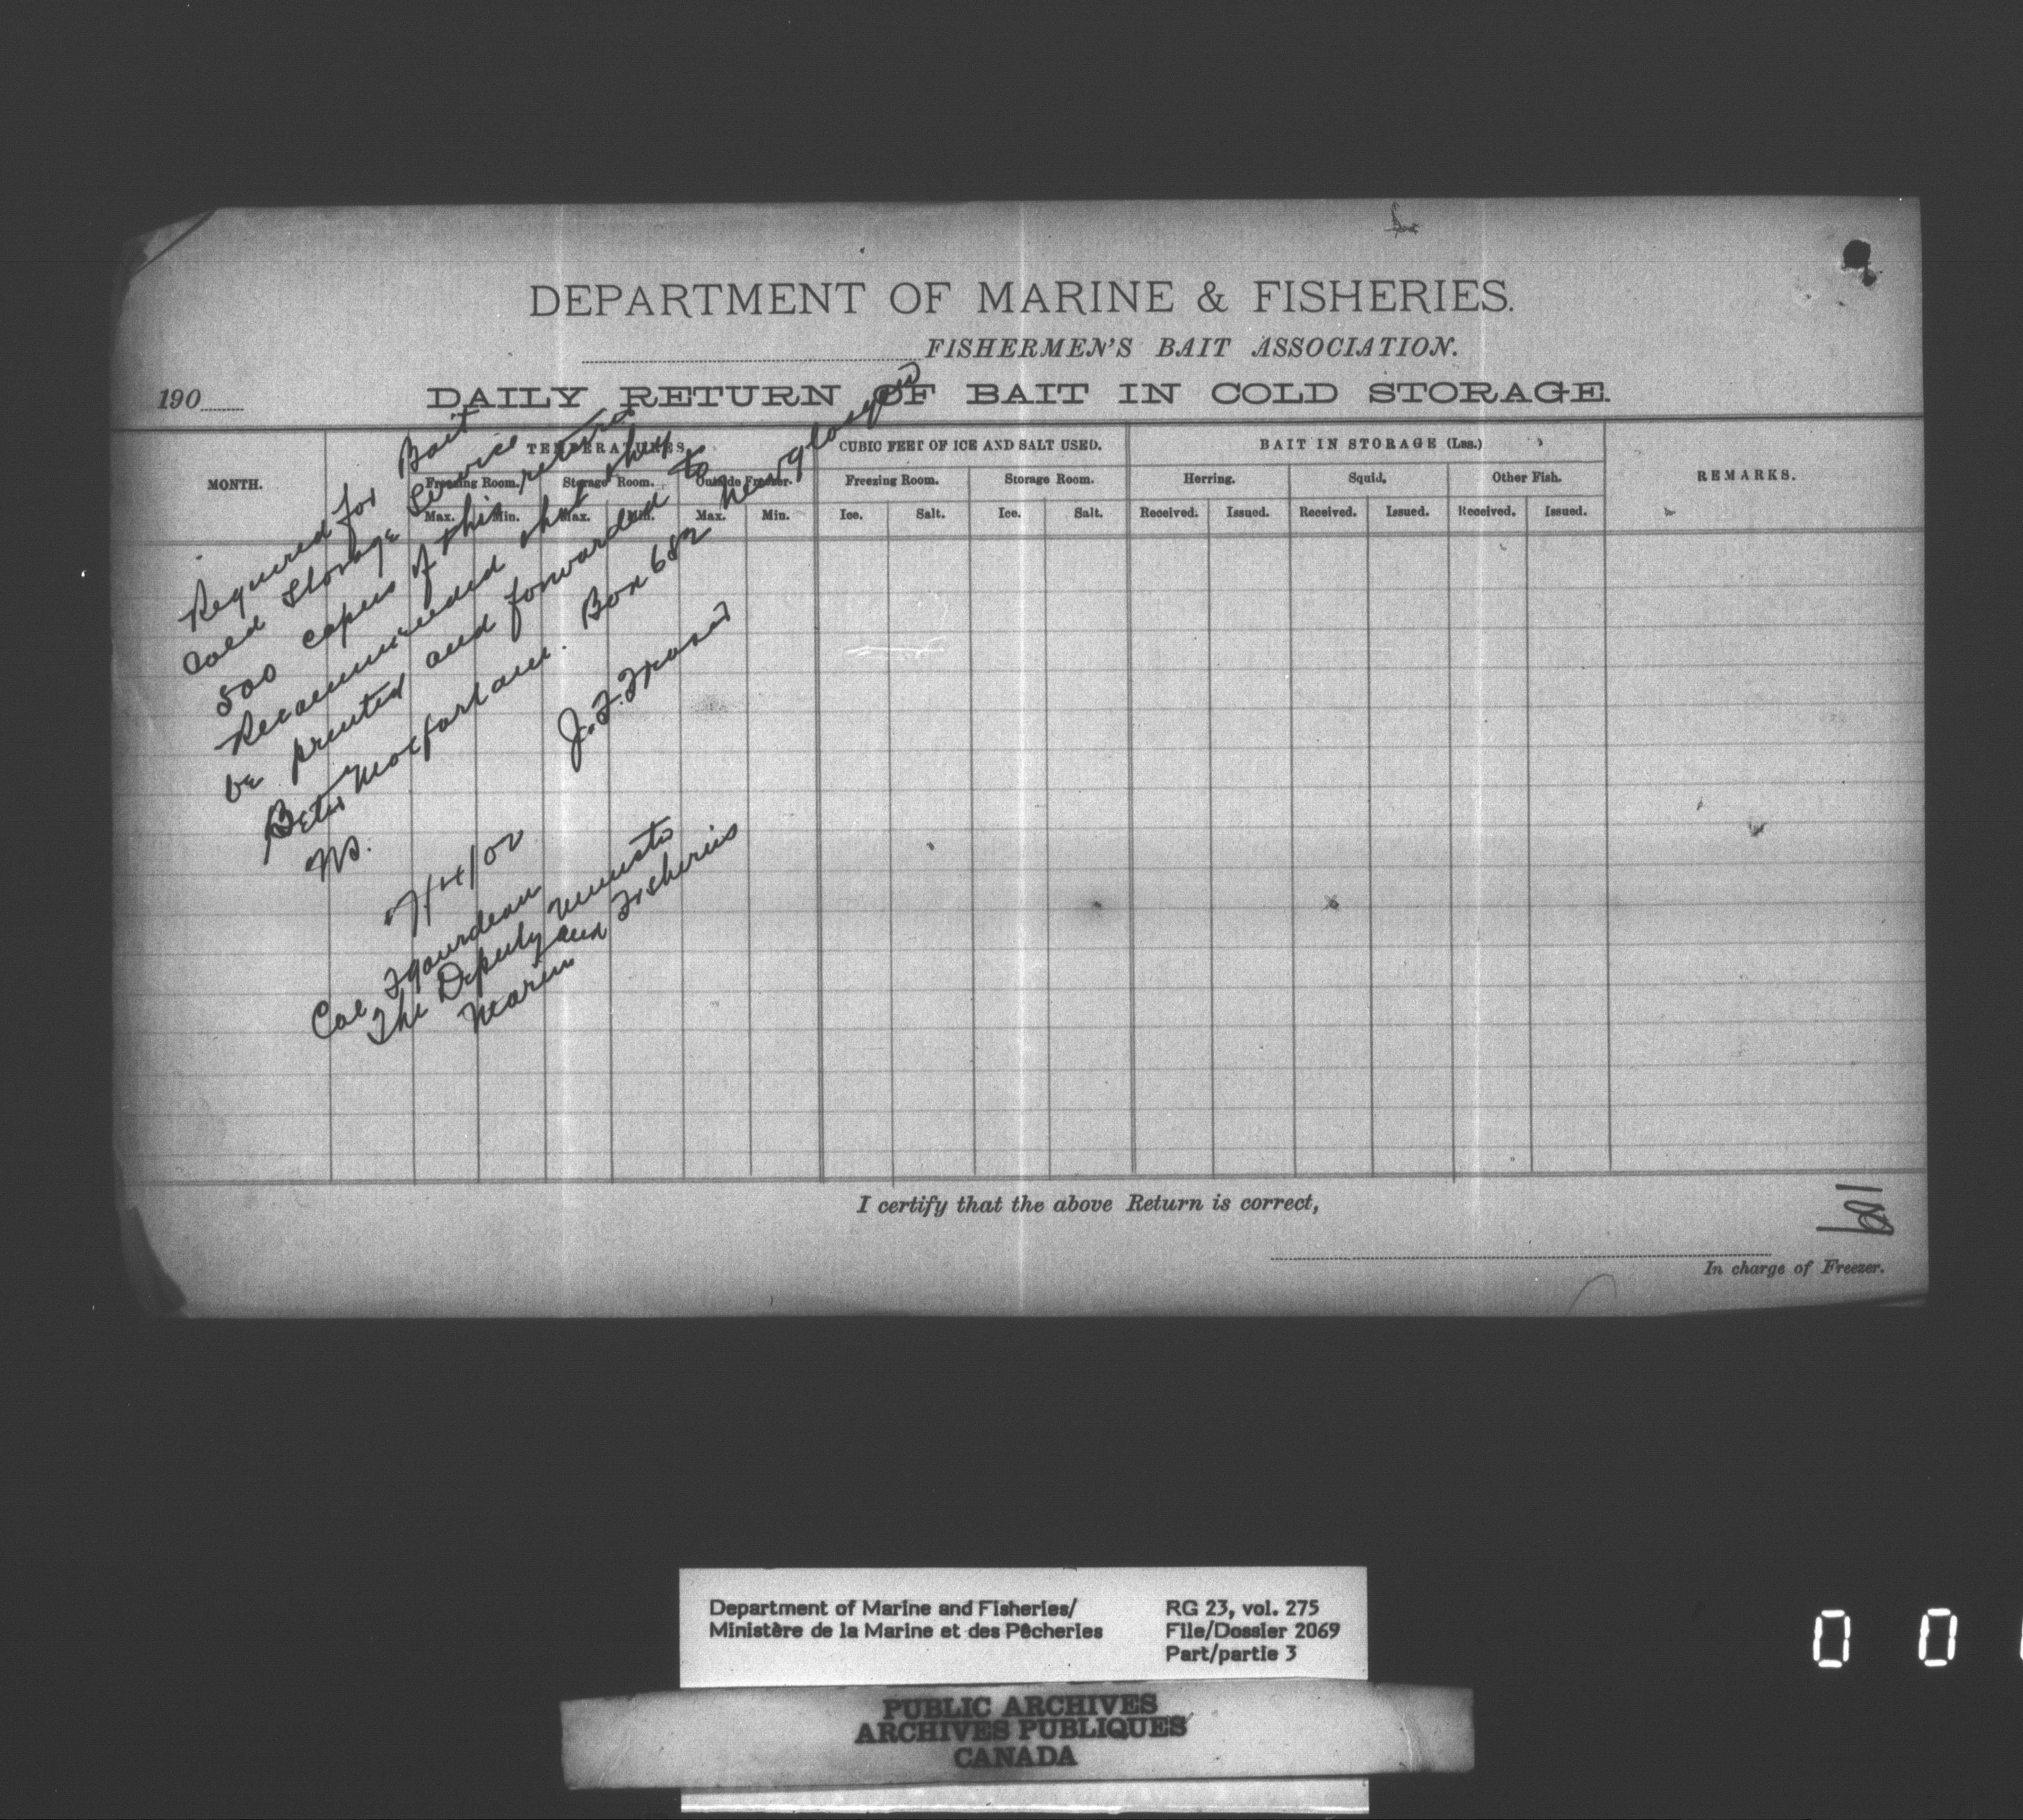 DEPARTMENT OF MARINE & FISHERIES.
FISHERMEN'S BAIT ASSOCIATION.
190
DAILY RETURN OF BAIT IN COLD STORAGE.
MONTH.
TEMPERATURES.
CUBIC FEET OF ICE AND SALT USED.
BAIT IN STORAGE (Lbs.)
REMARKS.
Freezing Room. Storage Room. Outside Freezer. Freezing Room. Storage Room. Herring. Squid. Other Fish.
Max. Min. Max. Min. Max. Min. Ice. Salt. Ice. Salt. Received. Issued. Received. Issued. Received. Issued.
Required for Bait
Cold Storage Service
500 copies of this return
Recommended that they
be printed and forwarded to
Peter Macfarlane. Box 682 New Glasgow
NS.
J. F. Fraser
Col F Gourdeau
The Deputy Minister
Marine and Fisheries
I certify that the above Return is correct,
In charge of Freezer.
Department of Marine and Fisheries/
Ministère de la Marine et des Pêcheries
RG 23, vol. 275
File/Dossier 2069
Part/partie 3
PUBLIC ARCHIVES
ARCHIVES PUBLIQUES
CANADA
0 0